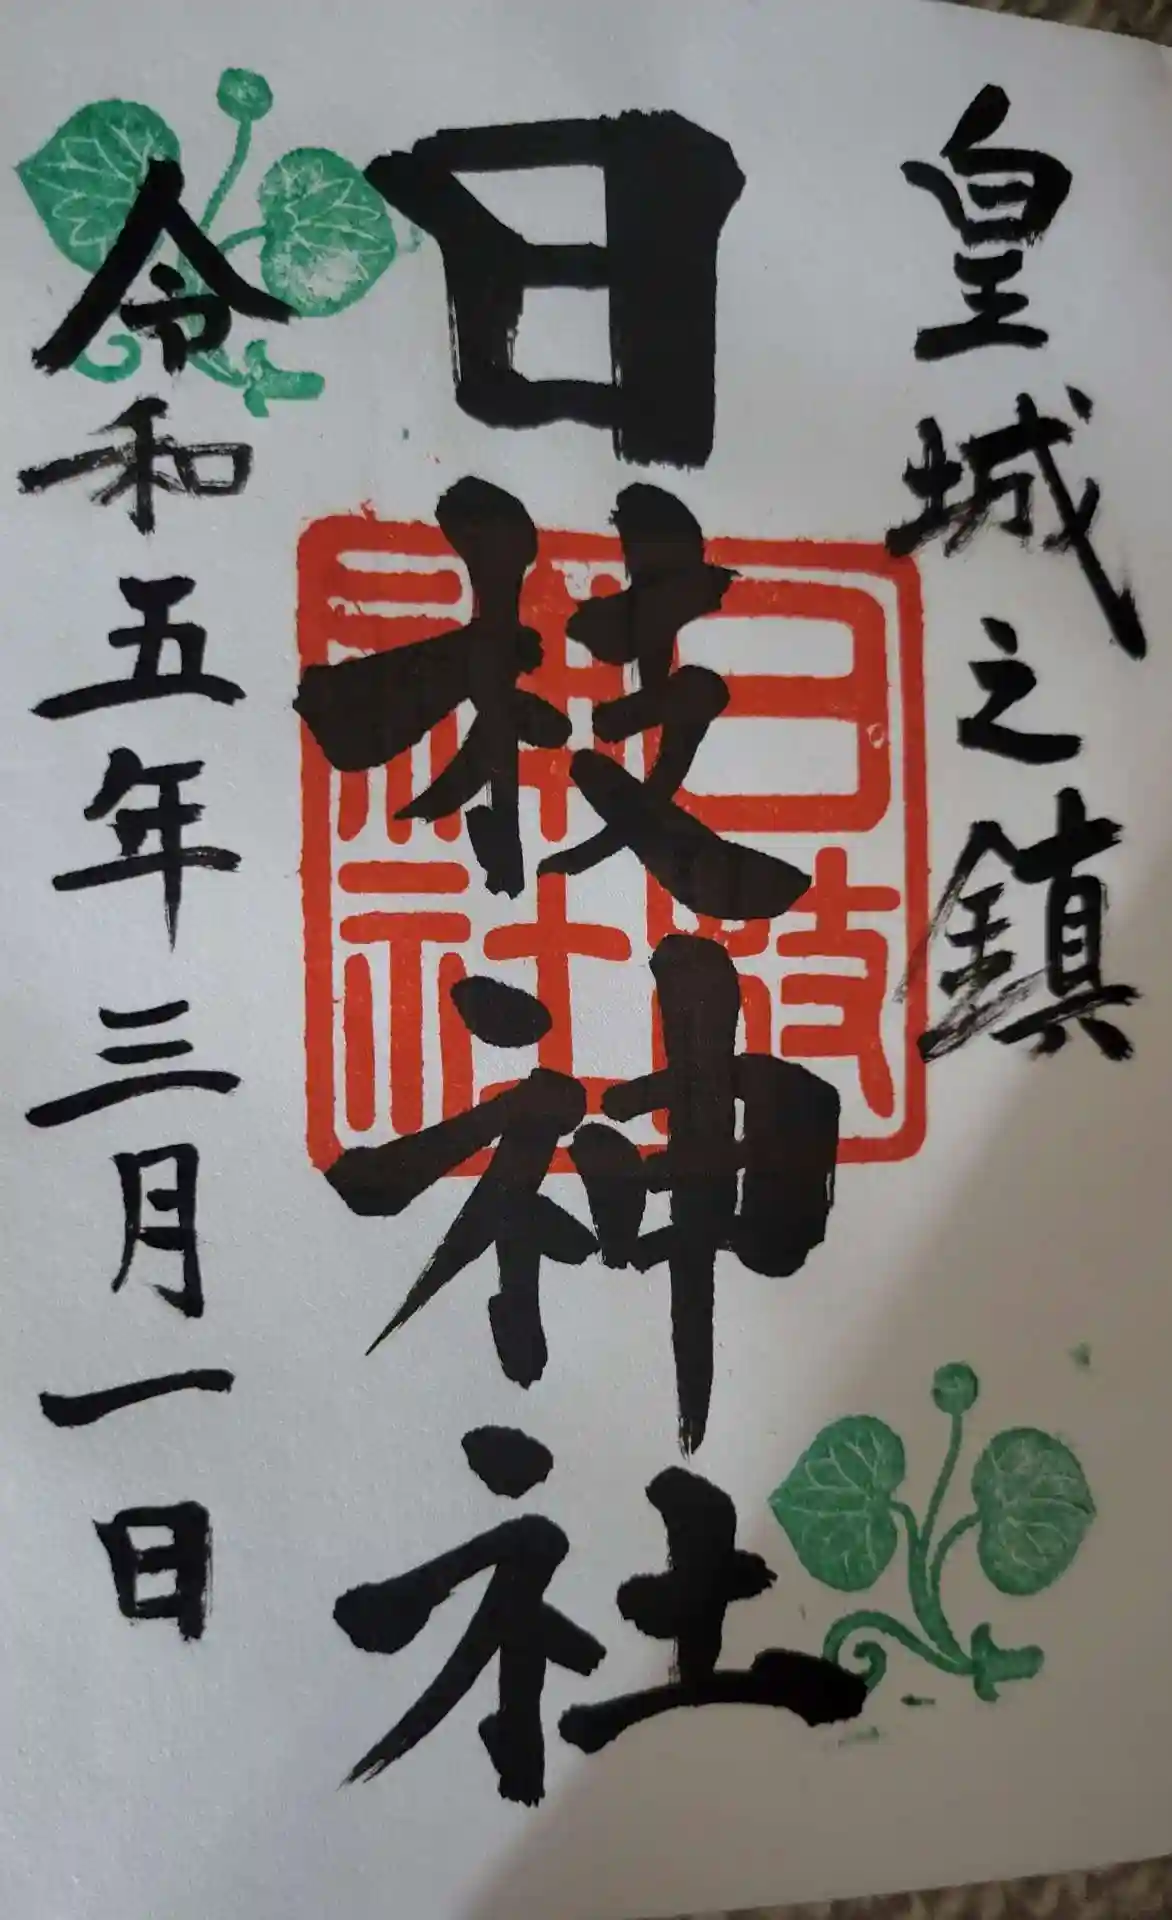 皇城之鎮
日枝神社
日枝
神社
令和五年三月一日